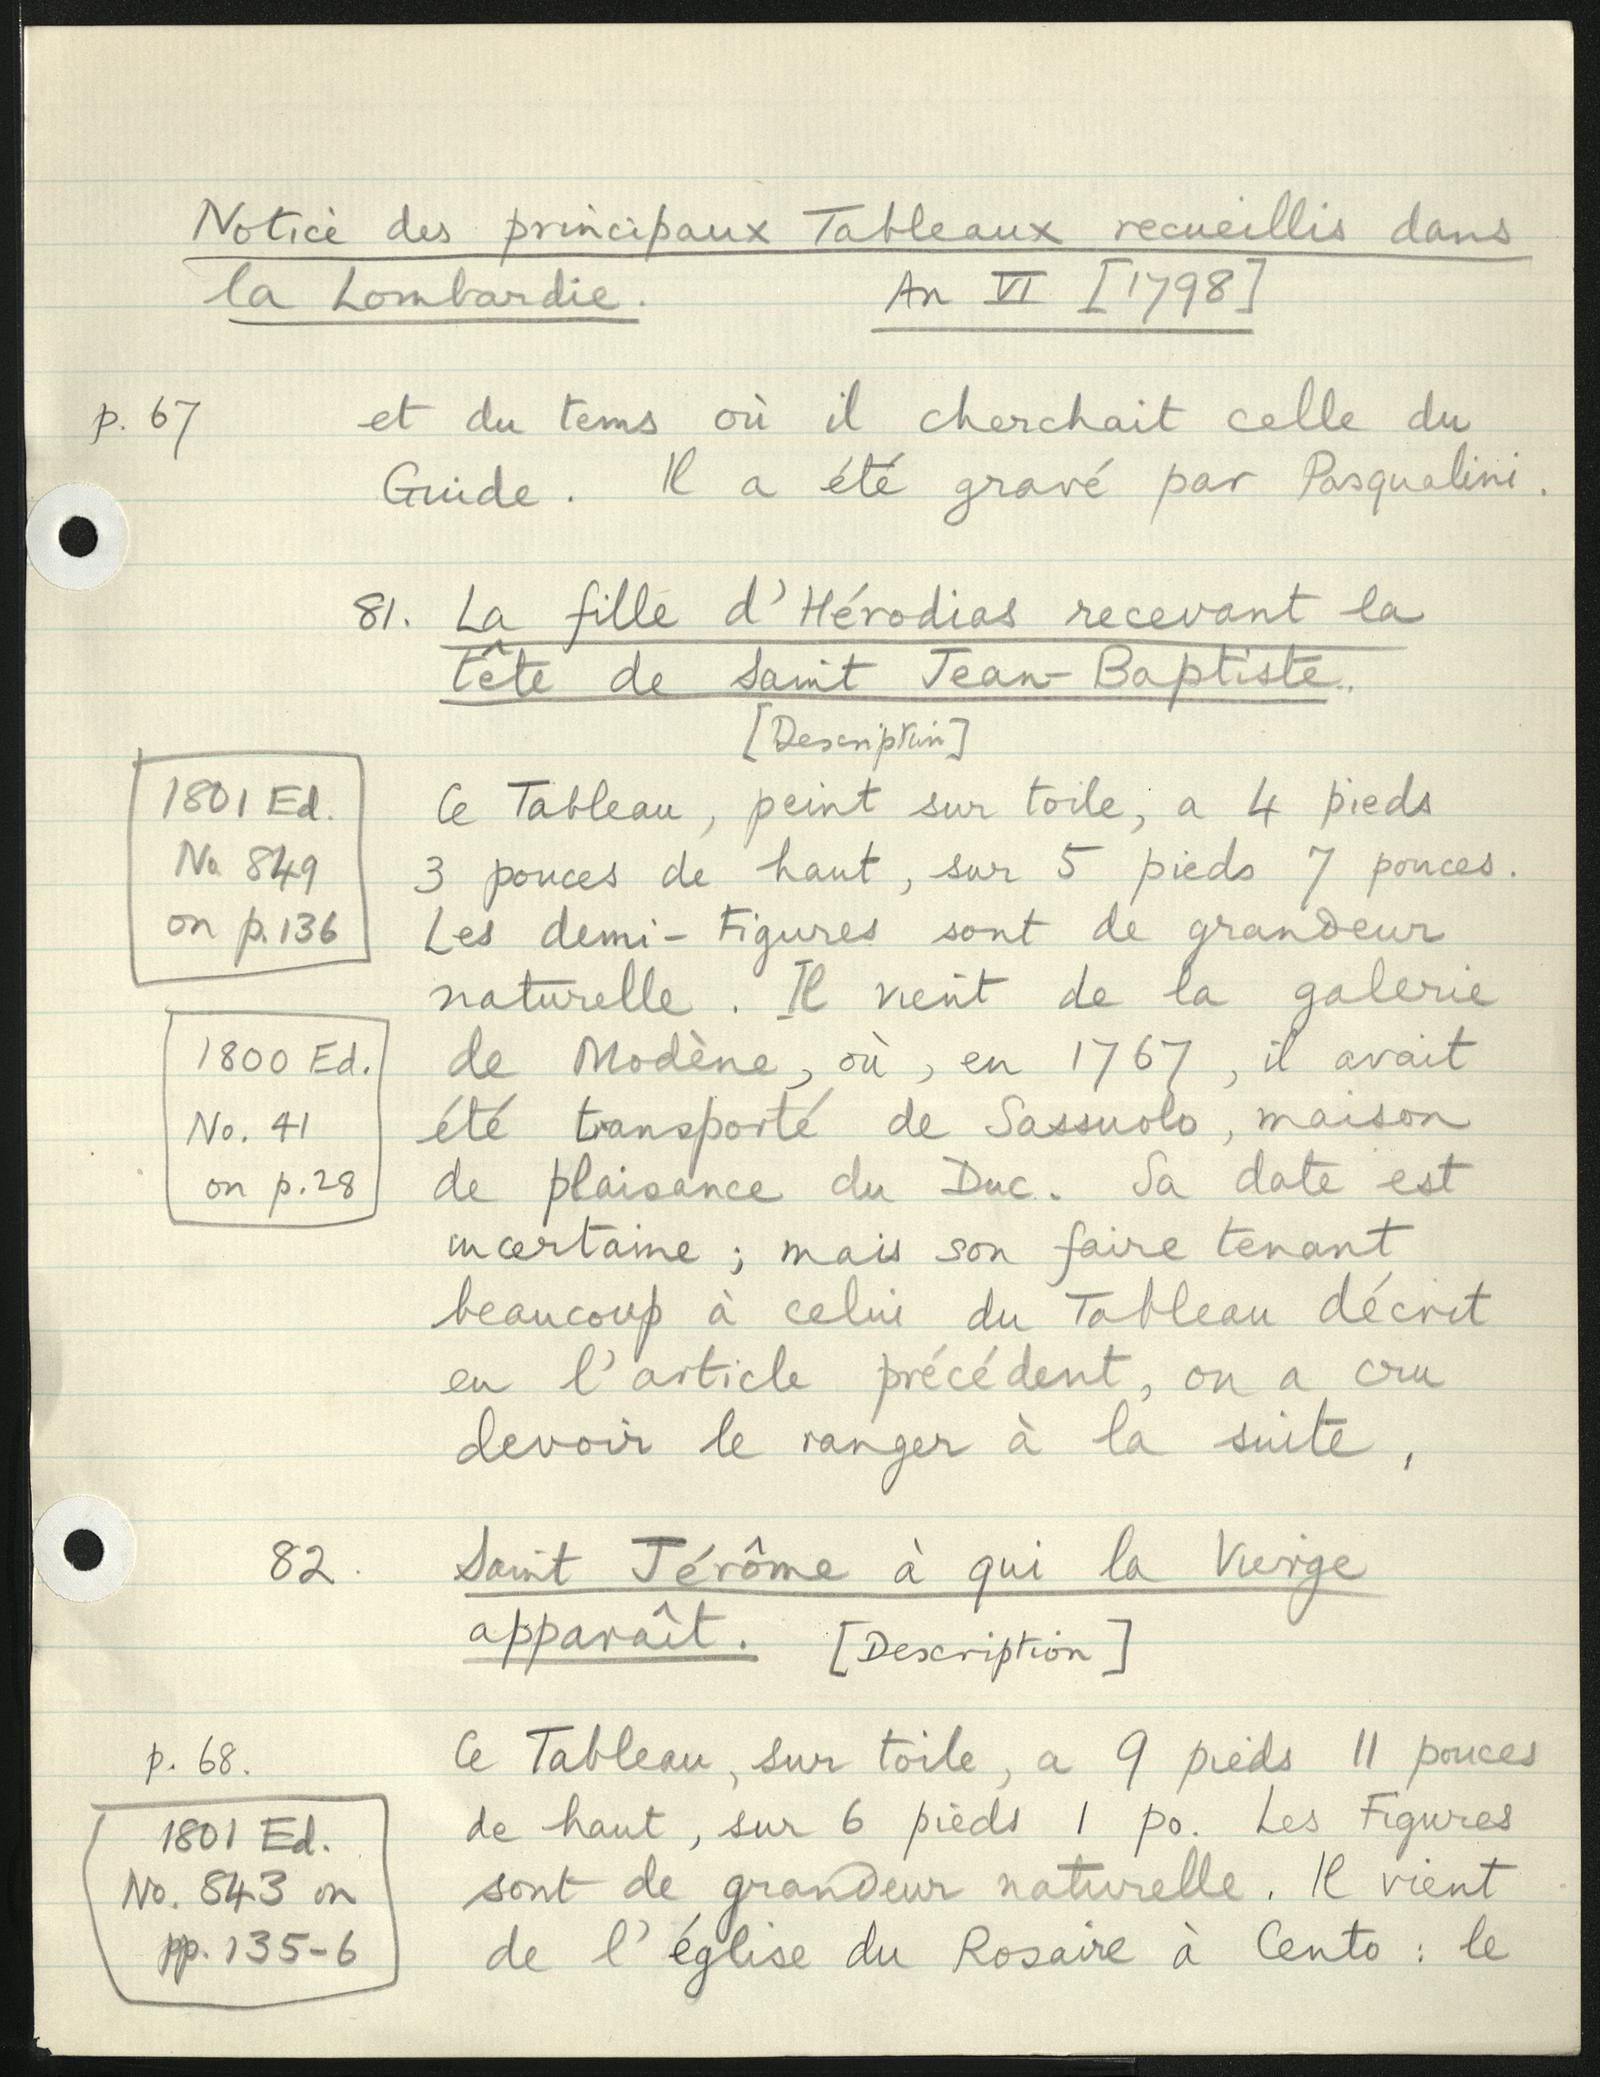 Notice des principaux Tableaux recueillis dans
la Lombardie. An VI [1798]
p. 67 et du tems où il cherchait celle du
Guide. Il a été gravé par Pasqualini.
81. La fille d'Hérodias recevant la
tête de Saint Jean-Baptiste.
[Description]
1801 Ed.
No 849
on p. 136
Ce Tableau, peint sur toile, a 4 pieds
3 pouces de haut, sur 5 pieds 7 pouces.
Les demi-Figures sont de grandeur
naturelle. Il vient de la galerie
1800 Ed.
No. 41
on p. 28
de Modène, où, en 1767, il avait
été transporté de Sassuolo, maison
de plaisance du Duc. Sa date est
incertaine; mais son faire tenant
beaucoup à celui du Tableau décrit
en l'article précédent, on a cru
devoir le ranger à la suite,
82. Saint Jérôme à qui la Vierge
apparaît. [Description]
p. 68. Ce Tableau, sur toile, a 9 pieds 11 pouces
1801 Ed.
No. 843 on
pp. 135-6
de haut, sur 6 pieds 1 po. Les Figures
sont de grandeur naturelle. Il vient
de l'église du Rosaire à Cento: le